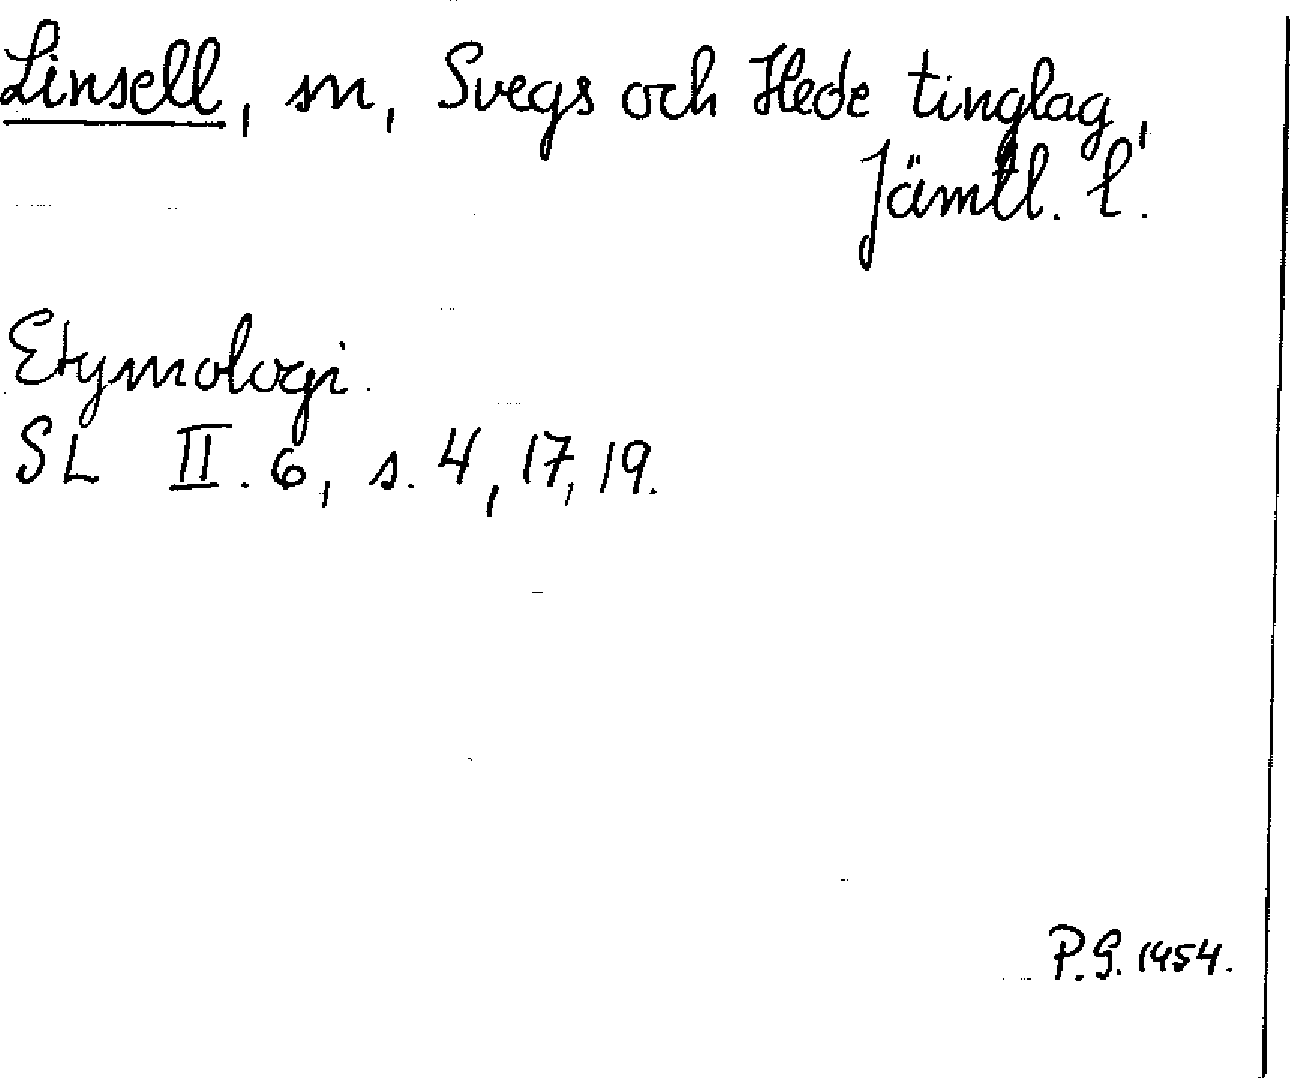 Linsell, sn, Svegs och Hede tinglag,
Jämtl. l.
Etymologi.
SL II. 6, s. 4, 17, 19.
P.G. 1954.